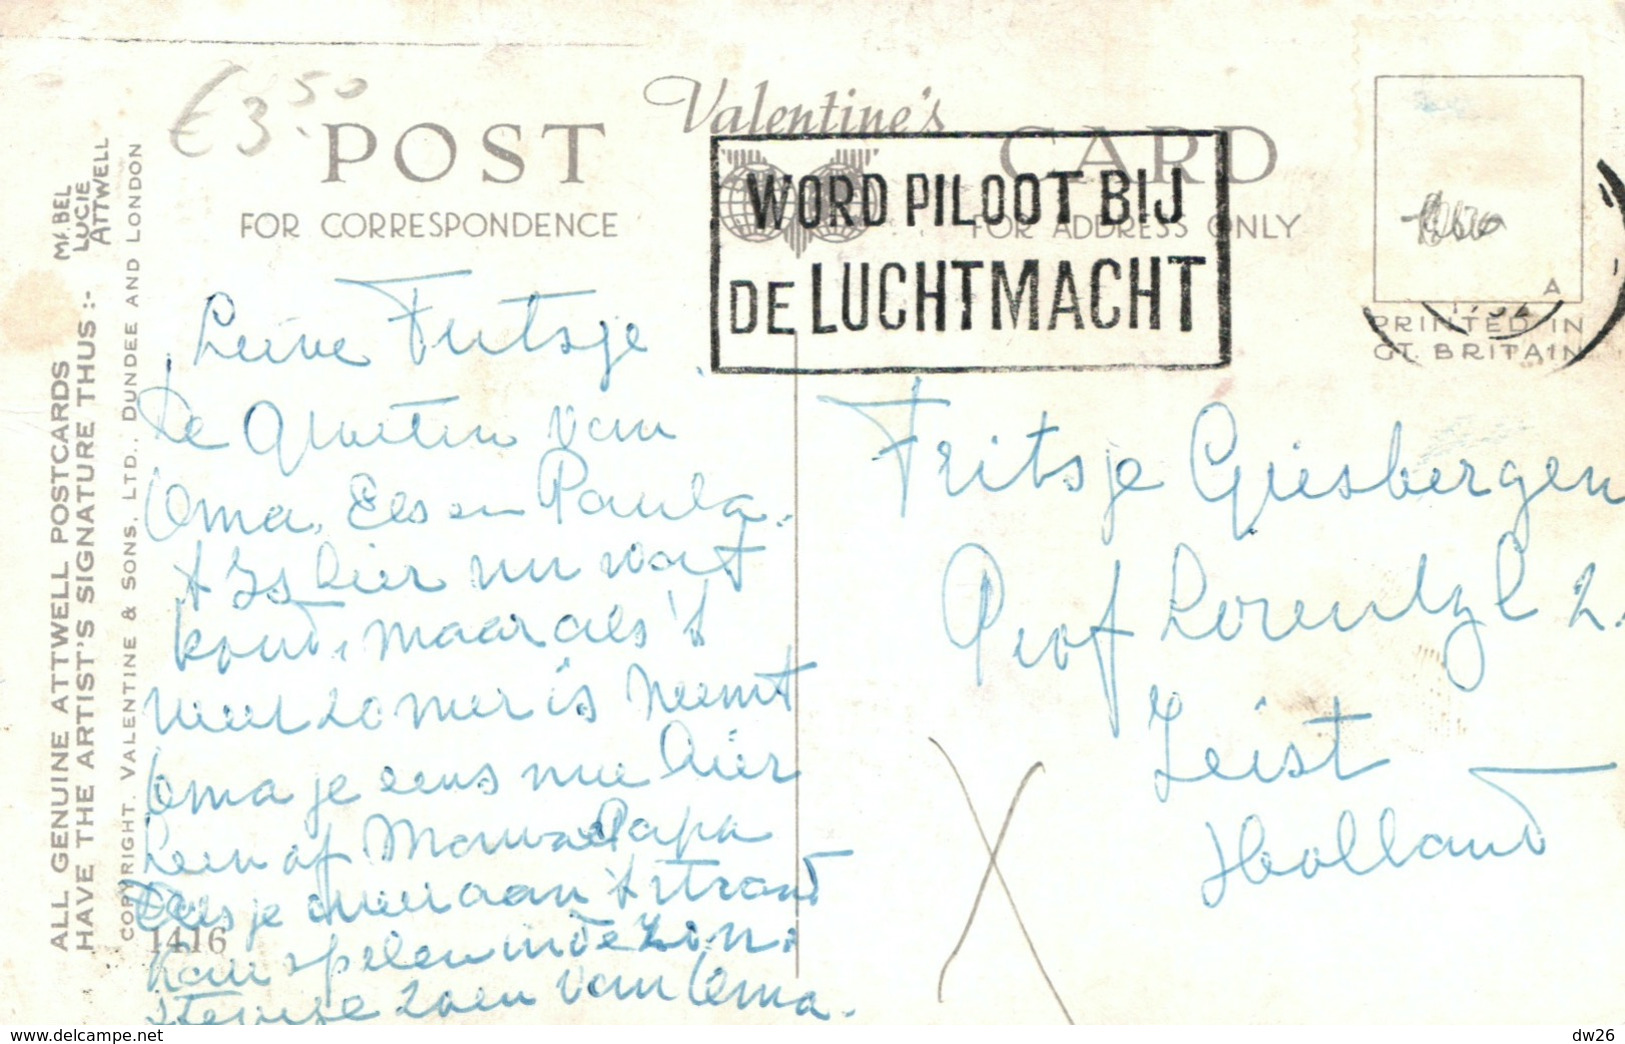 € 3.50
Valentine's
POST CARD
FOR CORRESPONDENCE
FOR ADDRESS ONLY
WORD PILOOT BIJ
DE LUCHTMACHT
A
PRINTED IN
GT. BRITAIN
ALL GENUINE ATTWELL POSTCARDS
HAVE THE ARTIST'S SIGNATURE THUS :-
MABEL
LUCIE
ATTWELL
COPYRIGHT. VALENTINE & SONS, LTD., DUNDEE AND LONDON
1416
Lieve Fritsje
de groeten van
Oma, Els en Paula.
't Is hier nu wat
koud, maar als 't
weer zomer is neemt
Oma je eens mee hier
heen of Mama Papa
je weer aan 't strand
kan spelen in de zon.
stevige zoen van Oma.
Fritsje Giesbergen
Prof Lorentzl 2.
Zeist
Holland
dw26